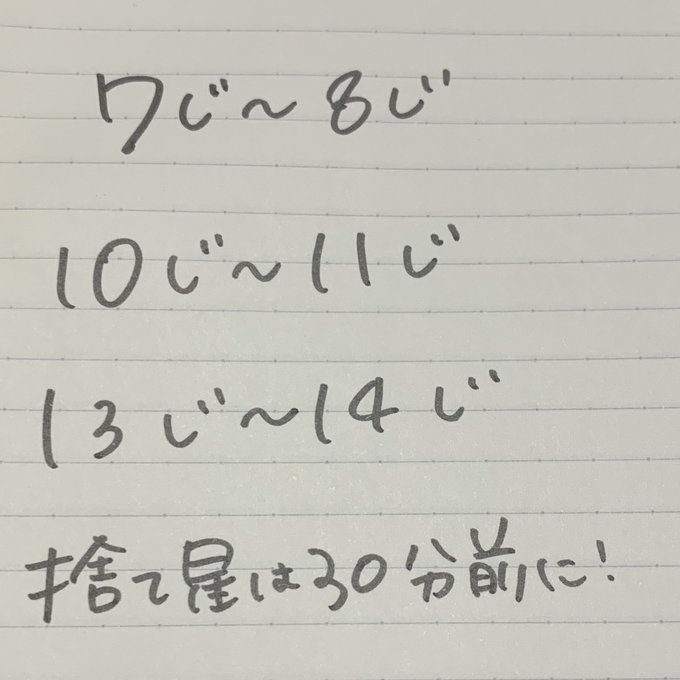 7じ〜8じ
10じ〜11じ
13じ〜14じ
捨て星は30分前に!